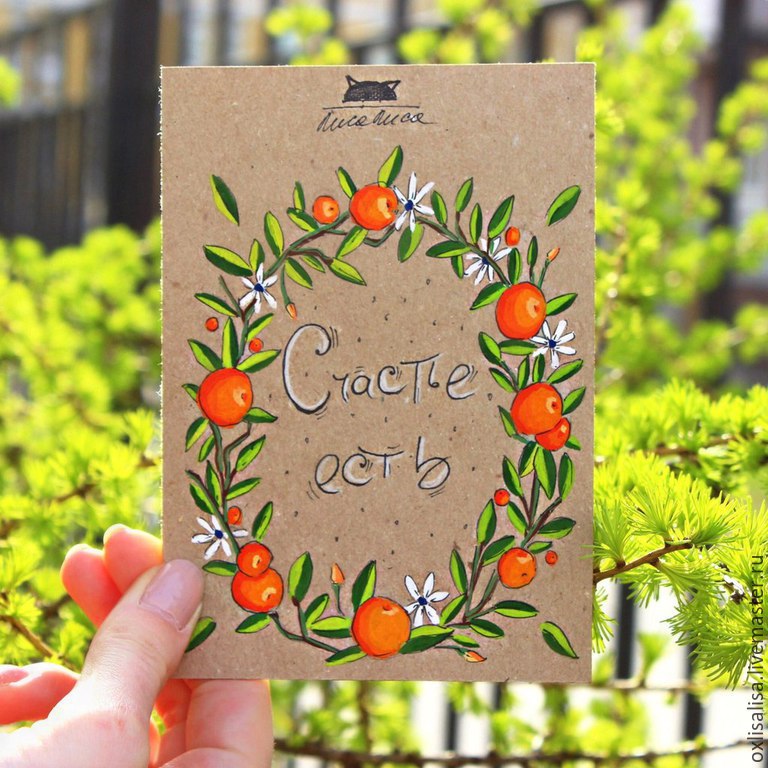 Лиса Лиса
Счастье
есть
oxlisalisa.livemaster.ru